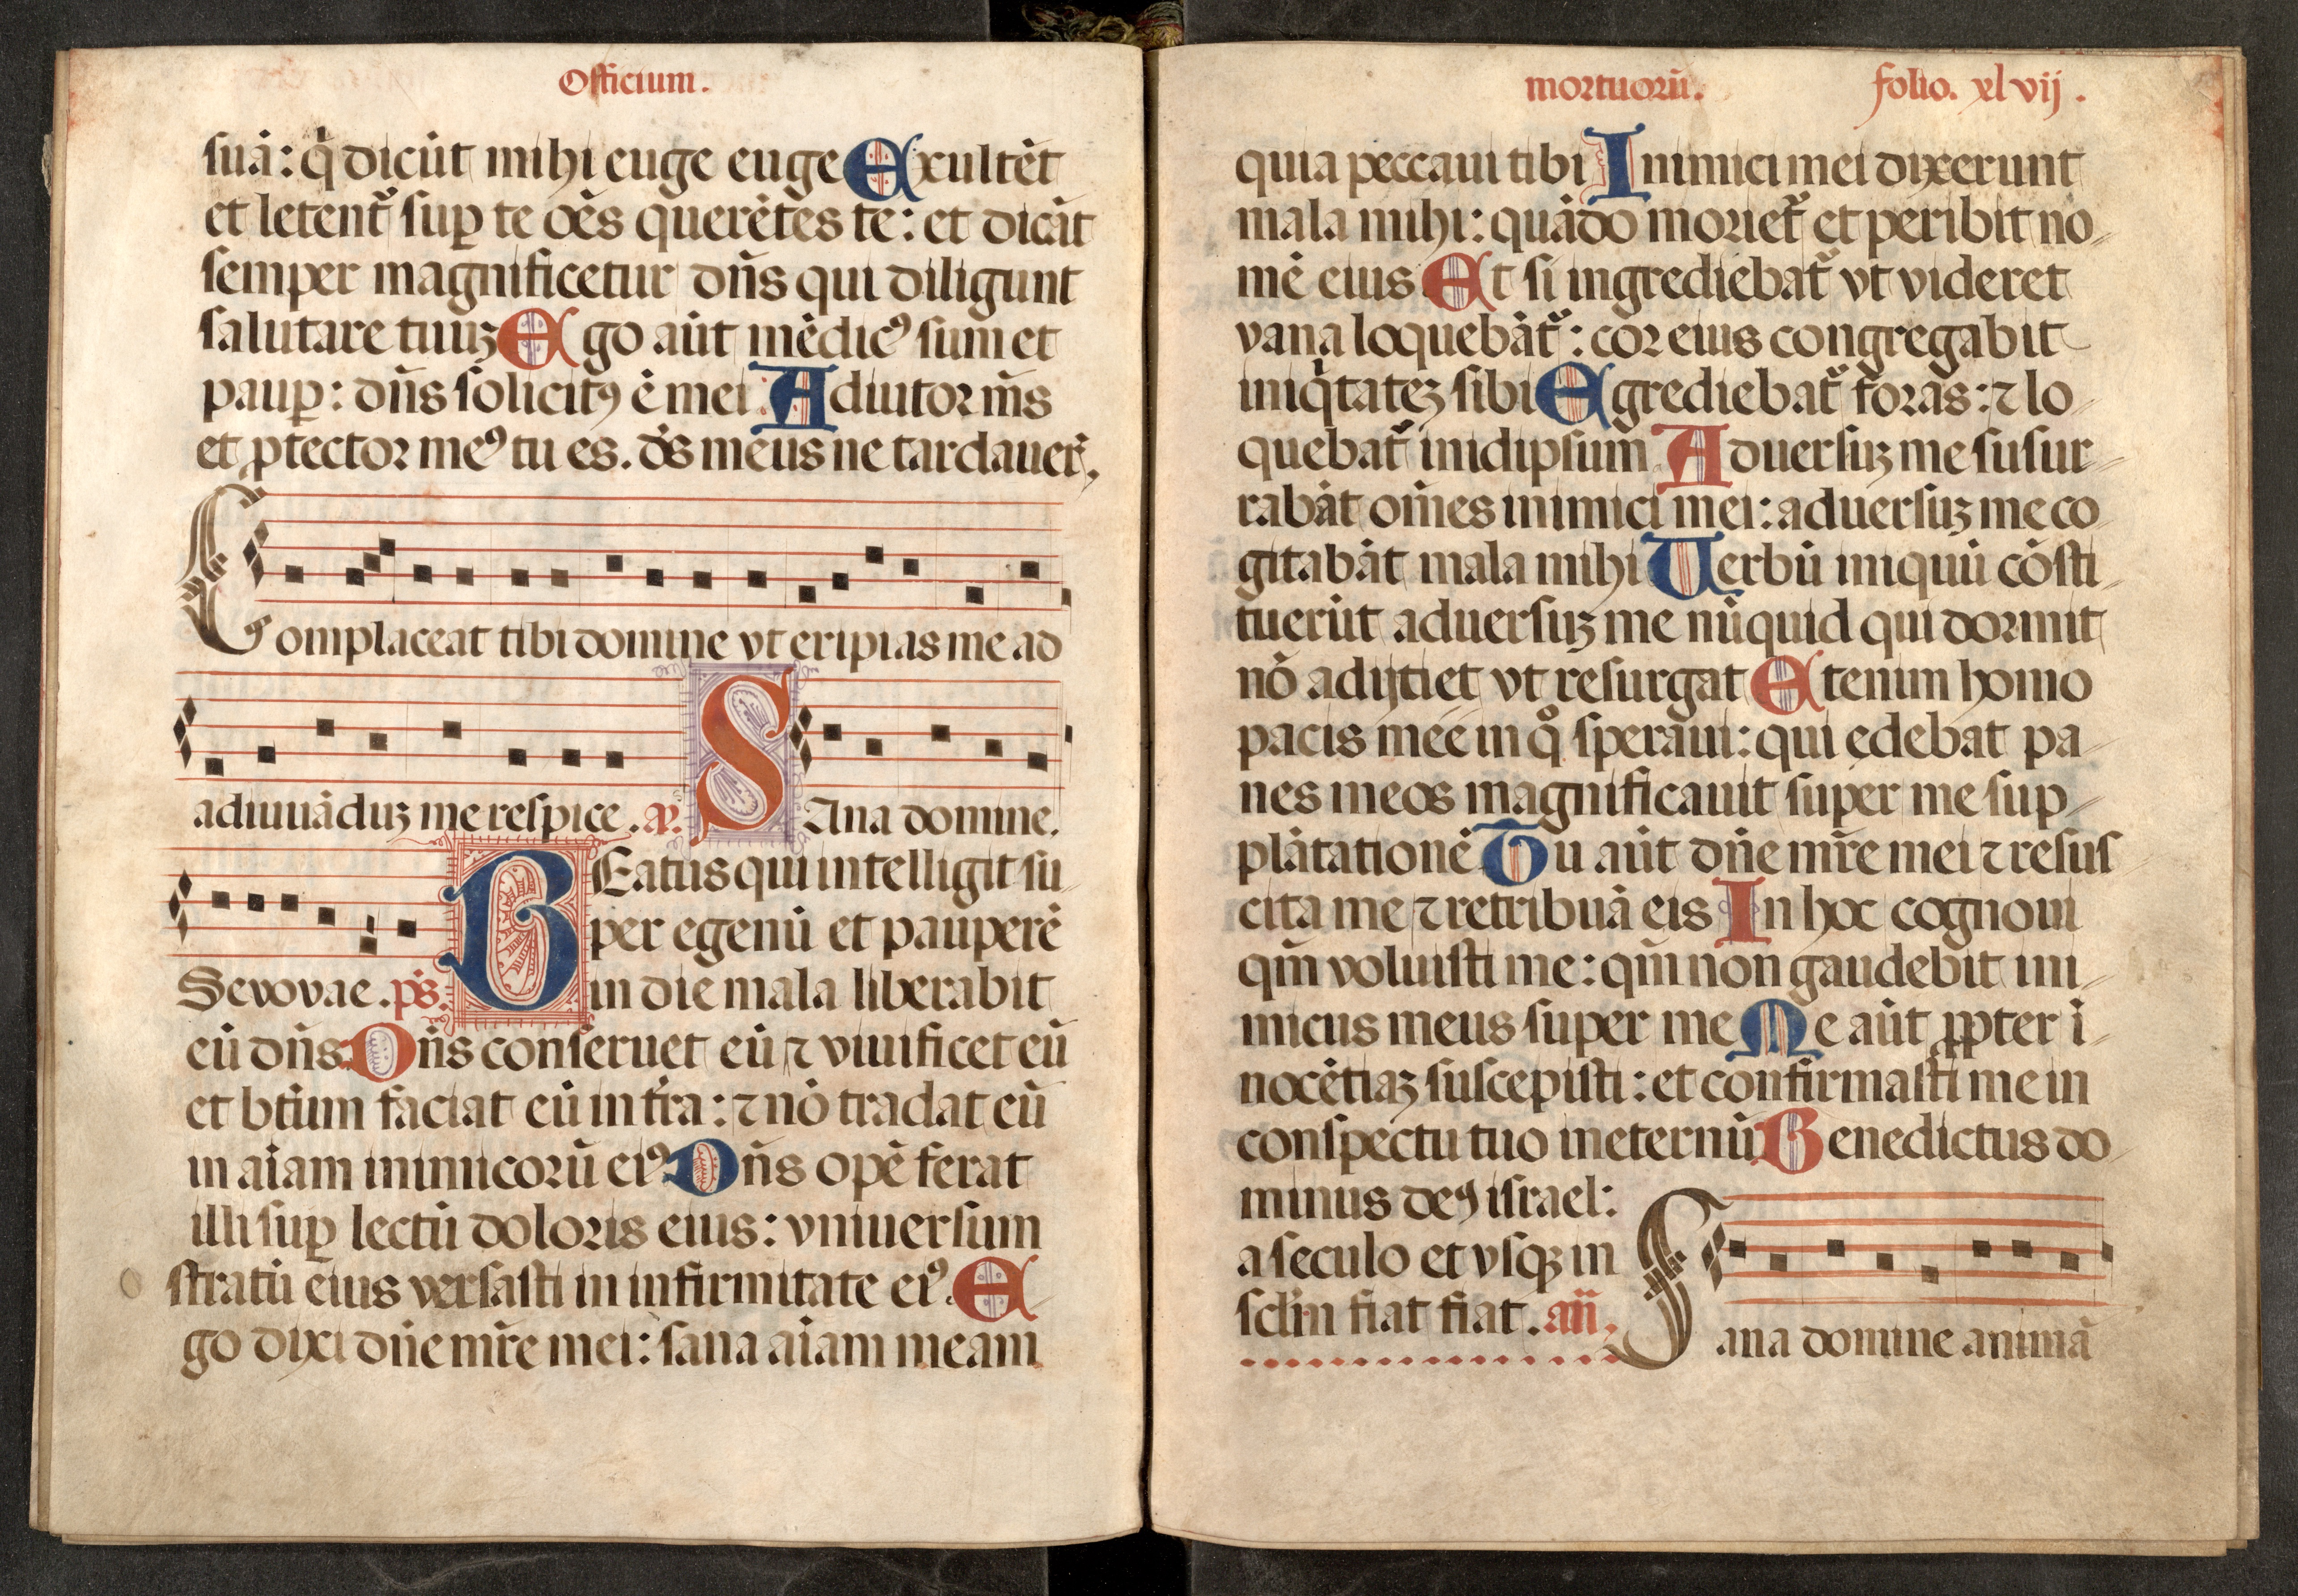 Officium.
suā: q̇ dicūt mihi euge euge Exultēt
et letent᷑ sup te oēs querētes te: et dicāt
semper magnificetur dn̄s qui diligunt
salutare tuuꝫ Ego aūt mēdicꝰ sum et
paup: dn̄s solicitꝰ ē mei. Adiutor m̄s
et ꝓtector meꝰ tu es. ds̄ meus ne tardauer᷑.
Complaceat tibi domine vt eripias me ad
adiuuāduꝫ me respice. ap̄. SAna domine.
BEatus qui intelligit su
per egenū et pauperē
Sevovae. ps̄. in die mala liberabit
eū dn̄s. Dn̄s conseruet eū ⁊ viuificet eū
et btūm faciat eū in tr̄a: ⁊ nō tradat eū
in aīam inimicorū eiꝰ. Dn̄s opē ferat
illi sup lectū doloris eius: vniuersum
stratū eius versasti in infirmitate eiꝰ. E
go dixi dn̄e mr̄e mei: sana aīam meam
mortuorū. folio. xlvij.
quia peccaui tibi Inimici mei dixerunt
mala mihi: quādo moriet᷑ et peribit no
mē eius Et si ingrediebat᷑ vt videret
vana loquebāt᷑: cor eius congregabit
iniq̇tateꝫ sibi Egrediebat᷑ foras: ⁊ lo
quebat᷑ in idipsum Aduersuꝫ me susur
rabāt om̄es inimici mei: aduersuꝫ me co
gitabāt mala mihi Uerbū iniquū cōsti
tuerūt aduersuꝫ me nūquid qui dormit
nō adijtiet vt resurgat Etenim homo
pacis mee in qͦ speraui: qui edebat pa
nes meos magnificauit super me sup
plātationē Tu aūt dn̄e mr̄e mei ⁊ resus
cita me ⁊ retribuā eis In hoc cognoui
qm̄ voluisti me: qm̄ non gaudebit ini
micus meus super me Me aūt ꝓpter i
nocētiaꝫ suscepisti: et confirmasti me in
conspectu tuo in eternū Benedictus do
minus deꝰ israel:
a seculo et vsqꝫ in
scl̄m fiat fiat. añ.
Sana domine animā